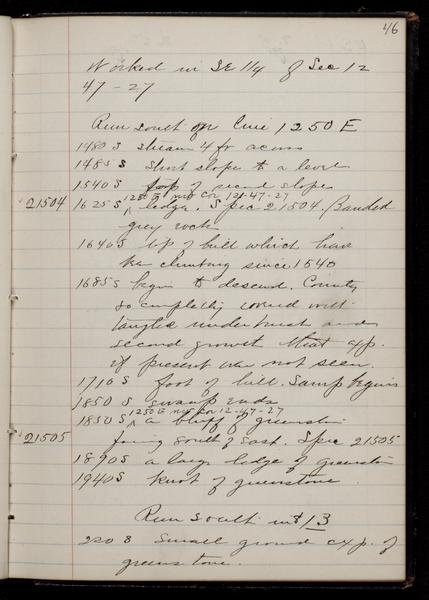 46
Worked in SE 1/4 of Sec 12
47-27
Run south on line 1250 E
1480 S stream 4 ft across
1485 S short slope to a level
1540 S foot of second slope
1250 E net Cor 12-47-27
21504 1625 S ledge. Spec 21504. Banded
grey rock
1640 S top of hill which have
been climbing since 1540
1685 S begin to descend. County
so completely covered with
tangled underbrush and
second growth that exp.
if present was not seen.
1710 S foot of hill. Swamp begins
1850 S swamp ends
1250 E net Cor 12-47-27
1850 S a bluff of greenstone
21505 facing south & east. Spec 21505
1890 S a large ledge of greenstone
1940 S knot of greenstone.
Run south int 13
220 S Small ground exp. of
greenstone.